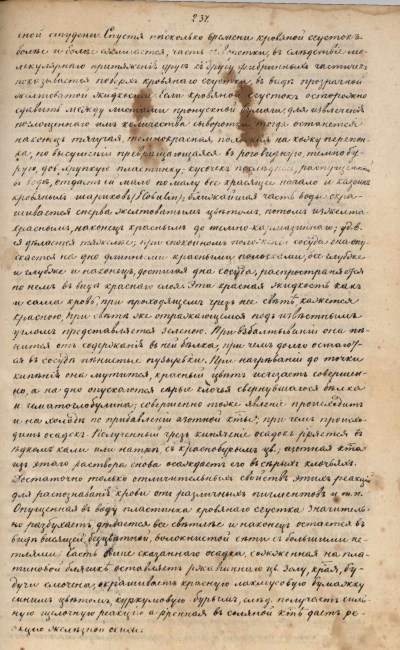 237.
сной студени. Спустя несколько времени кровяной сгустокъ
болѣе и болѣе сжимается, часть сыворотки, въ слѣдствіе мо-
лекулярнаго притяженія другъ къ другу фибринныхъ частичекъ
показывается поверхъ кровянаго сгустка въ видѣ прозрачной
желтоватой жидкости. Если кровяной сгустокъ осторожно
сдавить между листами пропускной бумаги, для извлеченія
поглощеннаго имъ количества сыворотки тогда останется
наконецъ тягучая, темнокрасная, похожая на кожу перепон-
ка, по высушеніи превращающаяся въ роговидную, темнобу-
рую, хрупкую пластинку; кусочекъ послѣдней, распущенный
въ водѣ, отдаетъ ей мало по малу все красящее начало
кровяныхъ шариковъ; ближайшая часть воды окра-
шивается сперва желтоватымъ цвѣтомъ, потомъ изжелта-
краснымъ, наконецъ краснымъ до темно-кармазиннаго;
дѣлается тяжелѣе; при спокойномъ положеніи сосуда она опу-
скается на дно длинными красными полосками, все глубже
и глубже и наконецъ, достигая дна сосуда, распространяется
по немъ въ видѣ краснаго слоя. Эта красная жидкость какъ
и сама кровь, при проходящемъ чрезъ нее свѣтѣ кажется
красною, при свѣтѣ же отражающемся подъ извѣстнымъ
угломъ представляется зеленою. При взбалтываніи она пѣ-
нится отъ содержанія въ ней бѣлка, при чемъ долго остают-
ся въ сосудѣ пѣнистые пузырьки. При нагрѣваніи до точки
кипѣнія она мутится, красный цвѣтъ исчезаетъ совершен-
но, а на дно опускаются сѣрые клочья свернувшагося бѣлка
и гематоглобулина; совершенно тоже явленіе происходитъ
и на холоду по прибавленіи азотной к-ты, при чемъ происхо-
дитъ осадокъ. Полученный чрезъ кипяченіе осадокъ растворяется въ
ѣдкомъ кали или натрѣ съ краснобурымъ цв., азотная к-та
изъ этого раствора снова осаждаетъ его въ сѣрыхъ клочьяхъ.
Достаточно только отличительныхъ свойствъ этихъ реакцій
для распознаванія крови отъ различныхъ пигментовъ и т.п.
Опущенная въ воду пластинка кровянаго сгустка значитель-
но разбухаетъ, дѣлается все свѣтлѣе и наконецъ остается въ
видѣ висящей, безцвѣтной, волокнистой сѣти съ большими пе-
тлями. Часть выше сказаннаго осадка, сожженная на пла-
тиновой бляшкѣ оставляетъ ржавчиннаго цв. золу, края, бу-
дучи смочена, окрашиваетъ красную лакмусовую бумажку
синимъ цвѣтомъ, куркумовую бурымъ, слѣд. получаетъ силь-
ную щелочную реакцію, а р-ренная въ соляной к-тѣ даетъ ре-
акцію желѣзной окиси.